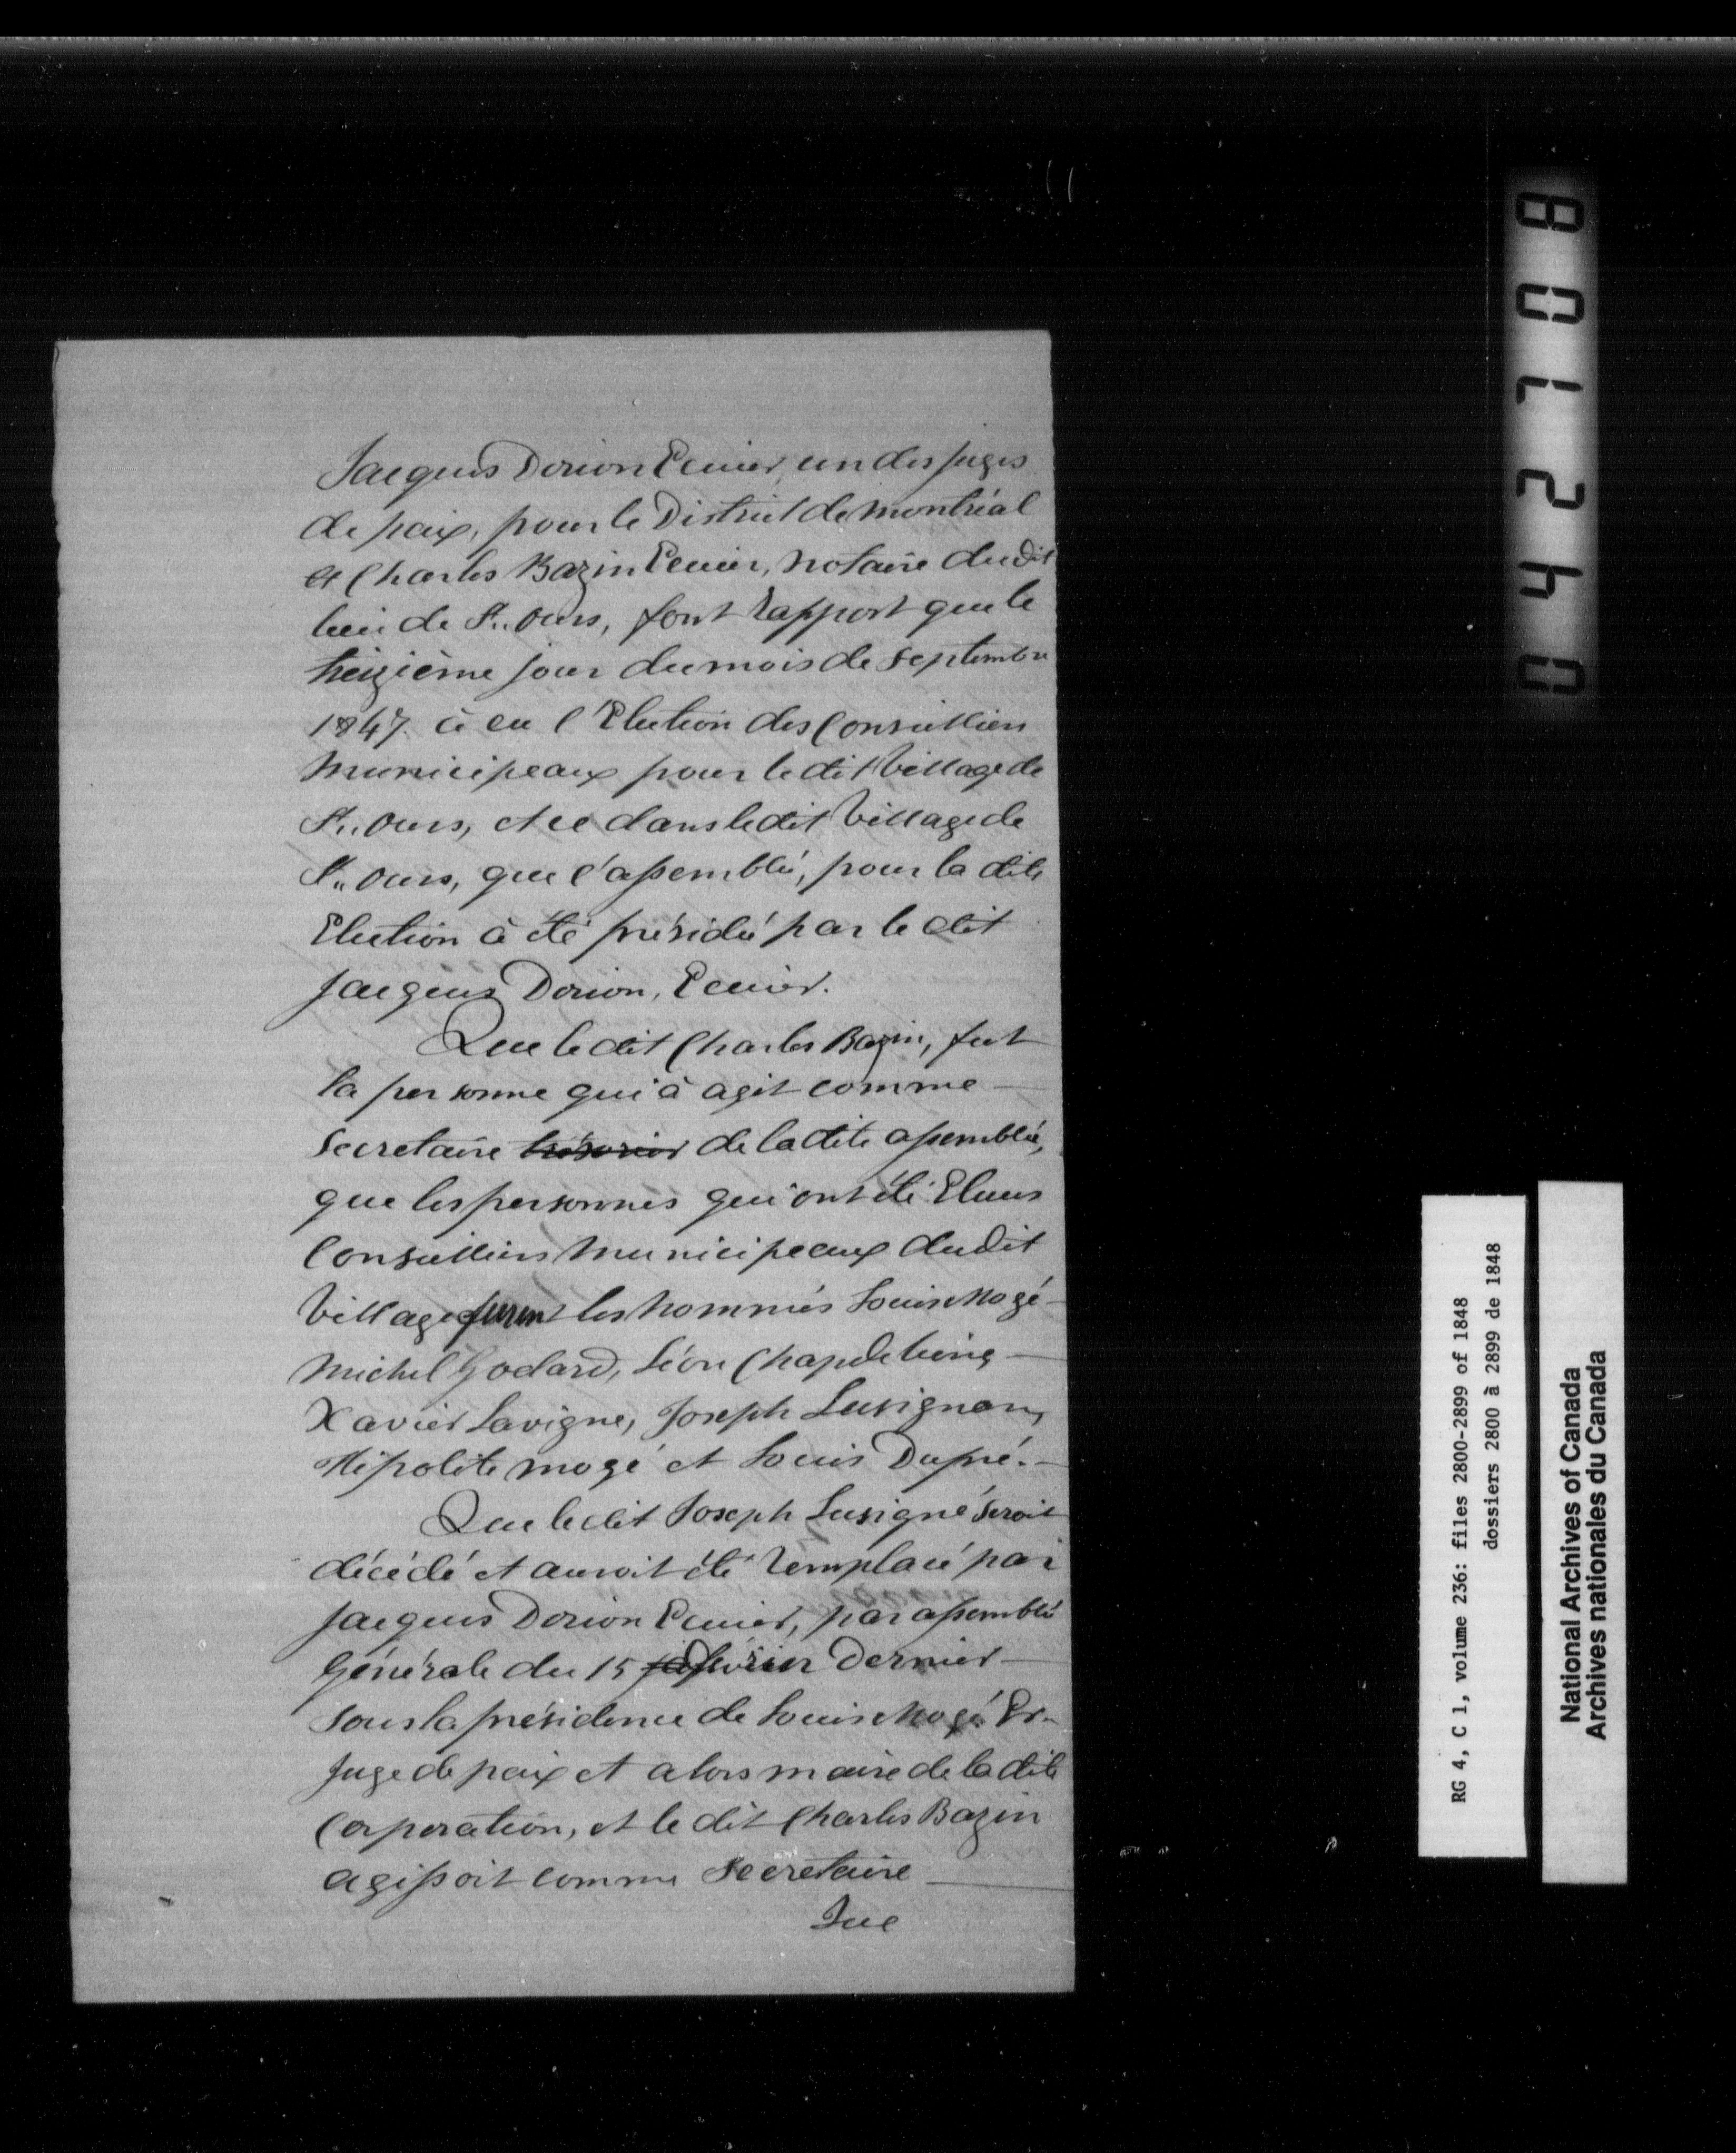 Jacques Dorion Ecuier, un des juges
de paix, pour le District de montréal
et Charles Bazin Ecuier, notaire du dit
lieu de St. Ours, font rapport que le
treizième jour du mois de Septembre
1847. à eu l'Election des Conseilliers
Municipeaux pour le dit Village de
St. Ours, et ce dans le dit Village de
St. Ours, que l'assemblée, pour la dite
Election à été présidée par le dit
Jacques Dorion, Ecuier.
Que le dit Charles Bazin, fut
la personne qui à agit comme
Secretaire trésorier de la dite assemblée,
que les personnes qui ont été Elues
Conseilliers Municipeaux du dit
Village furent les nommés Louis Mogé
Michel Godard, Léon Chapdeleine
Xavier Lavigne, Joseph Lusignan,
Hipolite Mogé et Louis Dupré.
Que le dit Joseph Lusigné seroit
décédé et auroit été remplacé par
Jacques Dorion Ecuier, par assemblée
Générale du 15 février Dernier
sous la présidence de Louis Mogé Er.
Juge de paix et alors maire de la dite
Corporation, et le dit Charles Bazin
agissoit comme Secretaire
Que
042708
RG 4, C 1, volume 236: files 2800-2899 of 1848
dossiers 2800 à 2899 de 1848
National Archives of Canada
Archives nationales du Canada